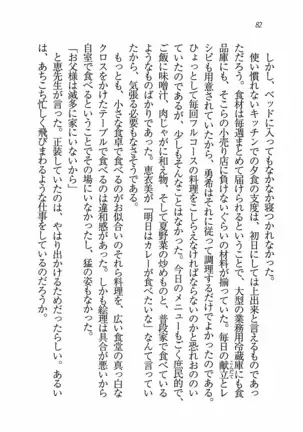 82
しかし、ベッドに入ってもなかなか寝つかれなかった。
使い慣れないキッチンでの夕食の支度は、初日にしては上出来と言えるものであっ
ただろう。食材は週末ごとに届けられるということで、大型の業務用冷蔵庫にも食
品庫にも、そこらの小売り店に負けないぐらいの材料が揃っていた。毎日の献立とレ
シピも用意されていたから、勇希はそれに従って調理するだけでよかったのである。
ひょっとして毎回フルコースの料理をこしらえなければならないのかと恐れおののい
ていたのであるが、少しもそんなことはなかった。今日のメニューもごく庶民的で、
ご飯に味噌汁、肉じゃがに和え物、そして夏野菜の炒めものと、普段家で食べている
ようなものばかりであった。恵衣美が「明日はカレーが食べたいな」なんて言ってい
たから、気張る必要もなさそうである。
もっとも、小さな食卓で食べるのがお似合いのそれら料理を、広い食堂の真っ白な
クロスをかけたテーブルで食べるのには違和感があった。しかも絵理は具合が悪いから
自室で食べるということでその場にいなかったし、猛の姿もなかった。
「お父様は滅多に家にいないから」
と恵先生が言った。正装していたのは、やはり出かけるためだったらしい。あるい
は、あちこち忙しく飛びまわるような仕事をしているのだろうか。